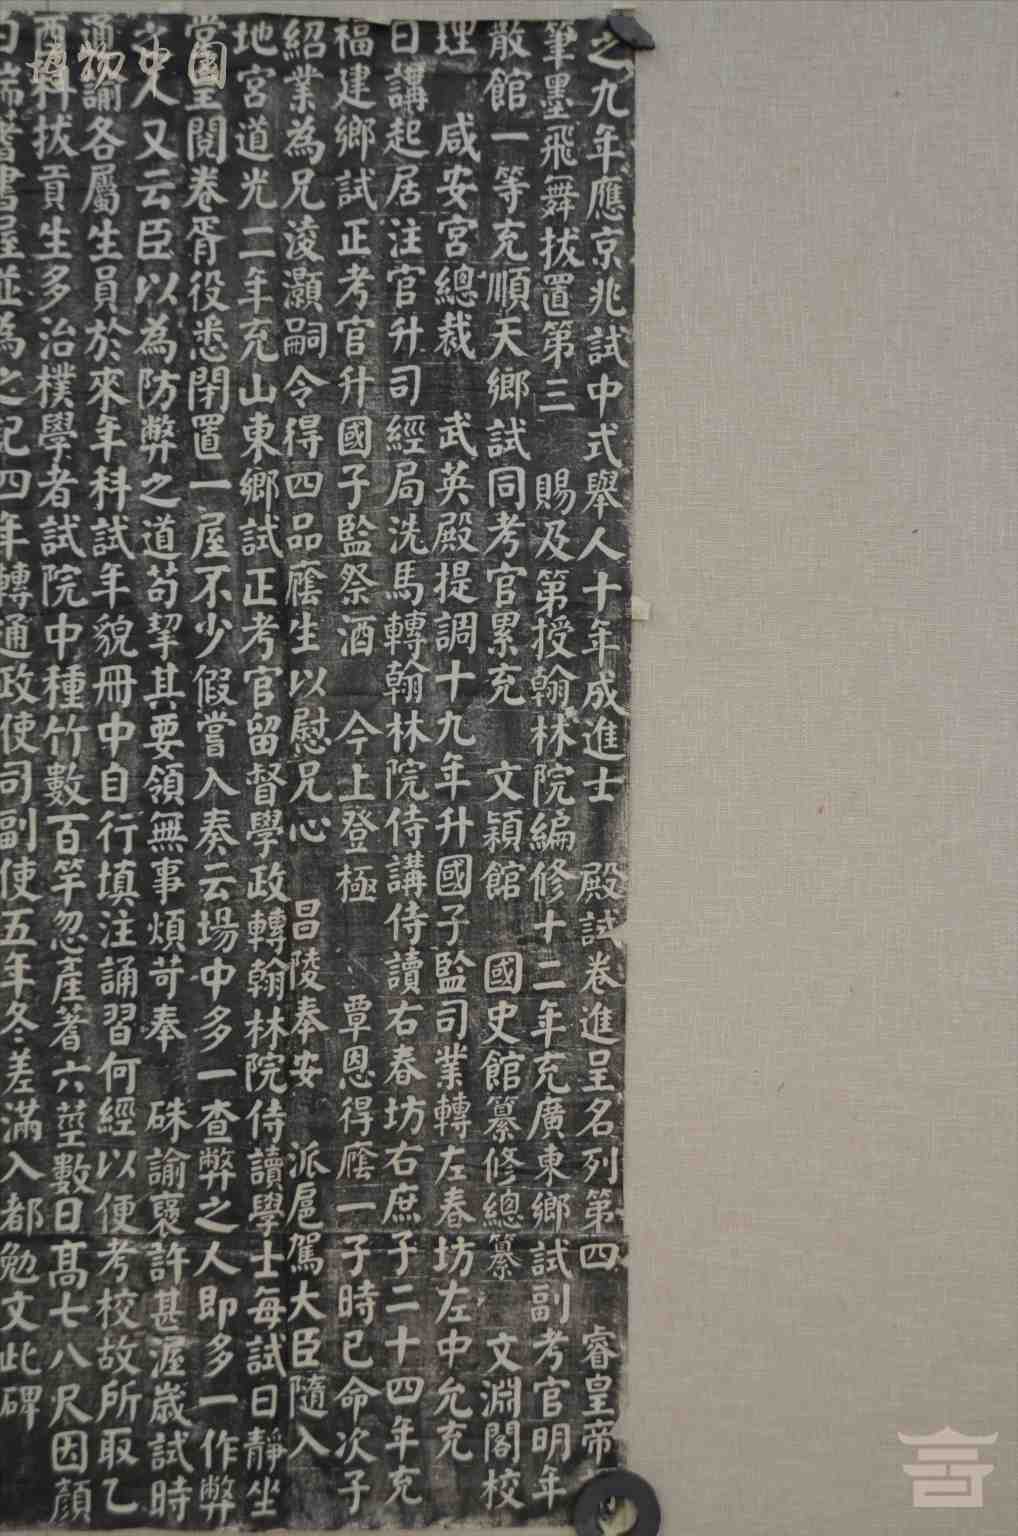 之九年應京兆試中式舉人十年成進士　殿試卷進呈名列第四　睿皇帝
筆墨飛舞拔置第三　賜及第授翰林院編修十二年充廣東鄉試副考官明年
散館一等充順天鄉試同考官累充　文穎館　國史館纂修總纂　文淵閣校
理　咸安宮總裁　武英殿提調十九年升國子監司業轉左春坊左中允充
日講起居注官升司經局洗馬轉翰林院侍講侍讀右春坊右庶子二十四年充
福建鄉試正考官升國子監祭酒　今上登極　覃恩得廕一子時已命次子
紹業為兄淩灝嗣令得四品廕生以慰兄心　昌陵奉安　派扈駕大臣隨入
地宮道光二年充山東鄉試正考官留督學政轉翰林院侍讀學士每試日靜坐
堂皇閱卷胥役悉閉置一屋不少假嘗入奏云場中多一查弊之人即多一作弊
之人又云臣以為防弊之道苟挈其要領無事煩苛奉　硃諭襃許甚渥歲試時
通諭各屬生員於來年科試年貌冊中自行填注誦習何經以便考校故所取乙
酉科拔貢生多治樸學者試院中種竹數百竿忽產蓍六莖數日高七八尺因顏
曰瑞蓍書屋並為之記四年轉通政使司副使五年冬差滿入都勉文此碑
博物中国